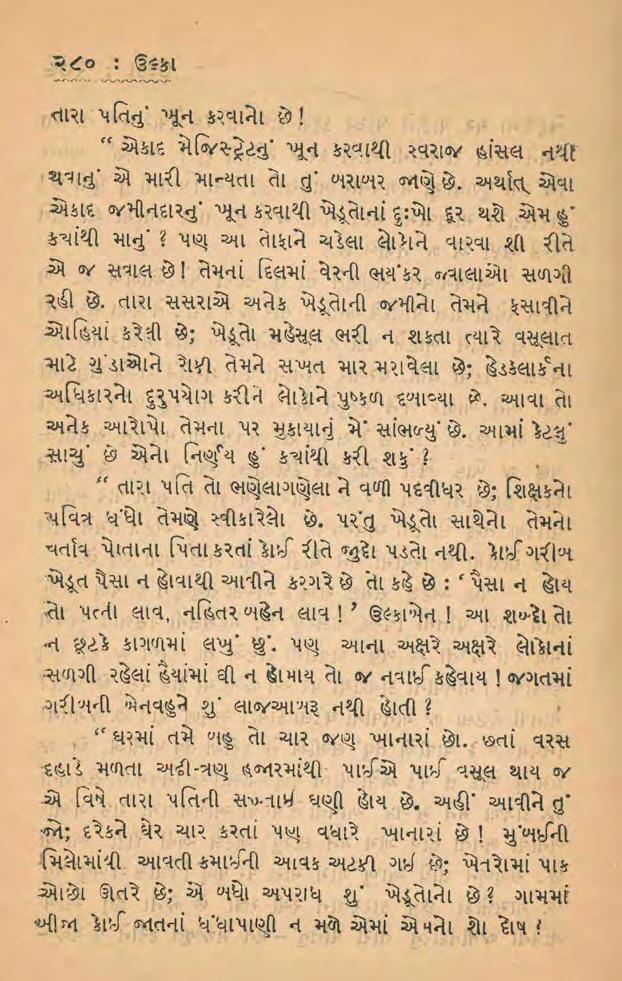 ૨૮૦ : ઉલ્કા
તારા પતિનું ખૂન કરવાનો છે!
“ એકાદ મેજિસ્ટ્રેટનું ખૂન કરવાથી સ્વરાજ હાંસલ નથી
થવાનું એ મારી માન્યતા તો તું બરાબર જાણે છે. અર્થાત્ એવા
એકાદ જમીનદારનું ખૂન કરવાથી ખેડૂતોનાં દુઃખો દૂર થશે એમ હું
ક્યાંથી માનું ? પણ આ તોફાને ચડેલા લોકોને વારવા શી રીતે
એ જ સવાલ છે! તેમનાં દિલમાં વેરની ભયંકર જ્વાલાઓ સળગી
રહી છે. તારા સસરાએ અનેક ખેડૂતોની જમીનો તેમને ફસાવીને
ઓહિયાં કરેલી છે; ખેડૂતો મહેસૂલ ભરી ન શકતા ત્યારે વસૂલાત
માટે ગુંડાઓને રોકી તેમને સખત માર મરાવેલા છે; હેડક્લાર્કના
અધિકારનો દુરુપયોગ કરીને લોકોને પુષ્કળ દબાવ્યા છે. આવા તો
અનેક આરોપો તેમના પર મુકાયાનું મેં સાંભળ્યું છે. આમાં કેટલું
સાચું છે એનો નિર્ણય હું ક્યાંથી કરી શકું ?
“ તારા પતિ તો ભણેલાગણેલા ને વળી પદવીધર છે; શિક્ષકનો
પવિત્ર ધંધો તેમણે સ્વીકારેલો છે. પરંતુ ખેડૂતો સાથેનો તેમનો
વર્તાવ પોતાના પિતા કરતાં કોઈ રીતે જુદો પડતો નથી. કોઈ ગરીબ
ખેડૂત પૈસા ન હોવાથી આવીને કરગરે છે તો કહે છે : ‘ પૈસા ન હોય
તો પત્ની લાવ, નહિતર બહેન લાવ ! ’ ઉલ્કાબેન ! આ શબ્દો તો
ન છૂટકે કાગળમાં લખું છું. પણ આના અક્ષરે અક્ષરે લોકોનાં
સળગી રહેલાં હૈયાંમાં ઘી ન હોમાય તો જ નવાઈ કહેવાય ! જગતમાં
ગરીબની બેનવહુને શું લાજઆબરૂ નથી હોતી ?
“ ઘરમાં તમે બહુ તો ચાર જણ ખાનારાં છો. છતાં વરસ
દહાડે મળતા અઢી-ત્રણ હજારમાંથી પાઈએ પાઈ વસૂલ થાય જ
એ વિષે તારા પતિની સખ્તાઈ ઘણી હોય છે. અહીં આવીને તું
જો; દરેકને ઘેર ચાર કરતાં પણ વધારે ખાનારાં છે ! મુંબઈની
મિલોમાંથી આવતી કમાઈની આવક અટકી ગઈ છે; ખેતરોમાં પાક
ઓછો ઊતરે છે; એ બધો અપરાધ શું ખેડૂતોનો છે? ગામમાં
બીજા કોઈ જાતનાં ધંધાપાણી ન મળે એમાં એમનો શો દોષ ?